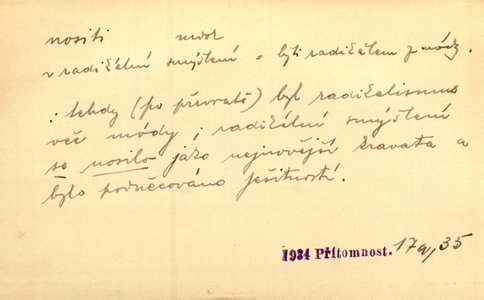 nositi
v radikální smýšlení = býti radikálem z módy.
: tehdy (po převratě) byl radikalismus
věc módy; radikální smýšlení
se nosilo jako nejnovější kravata a
bylo podněcováno ješitností.
1924 Přítomnost. 179, 35